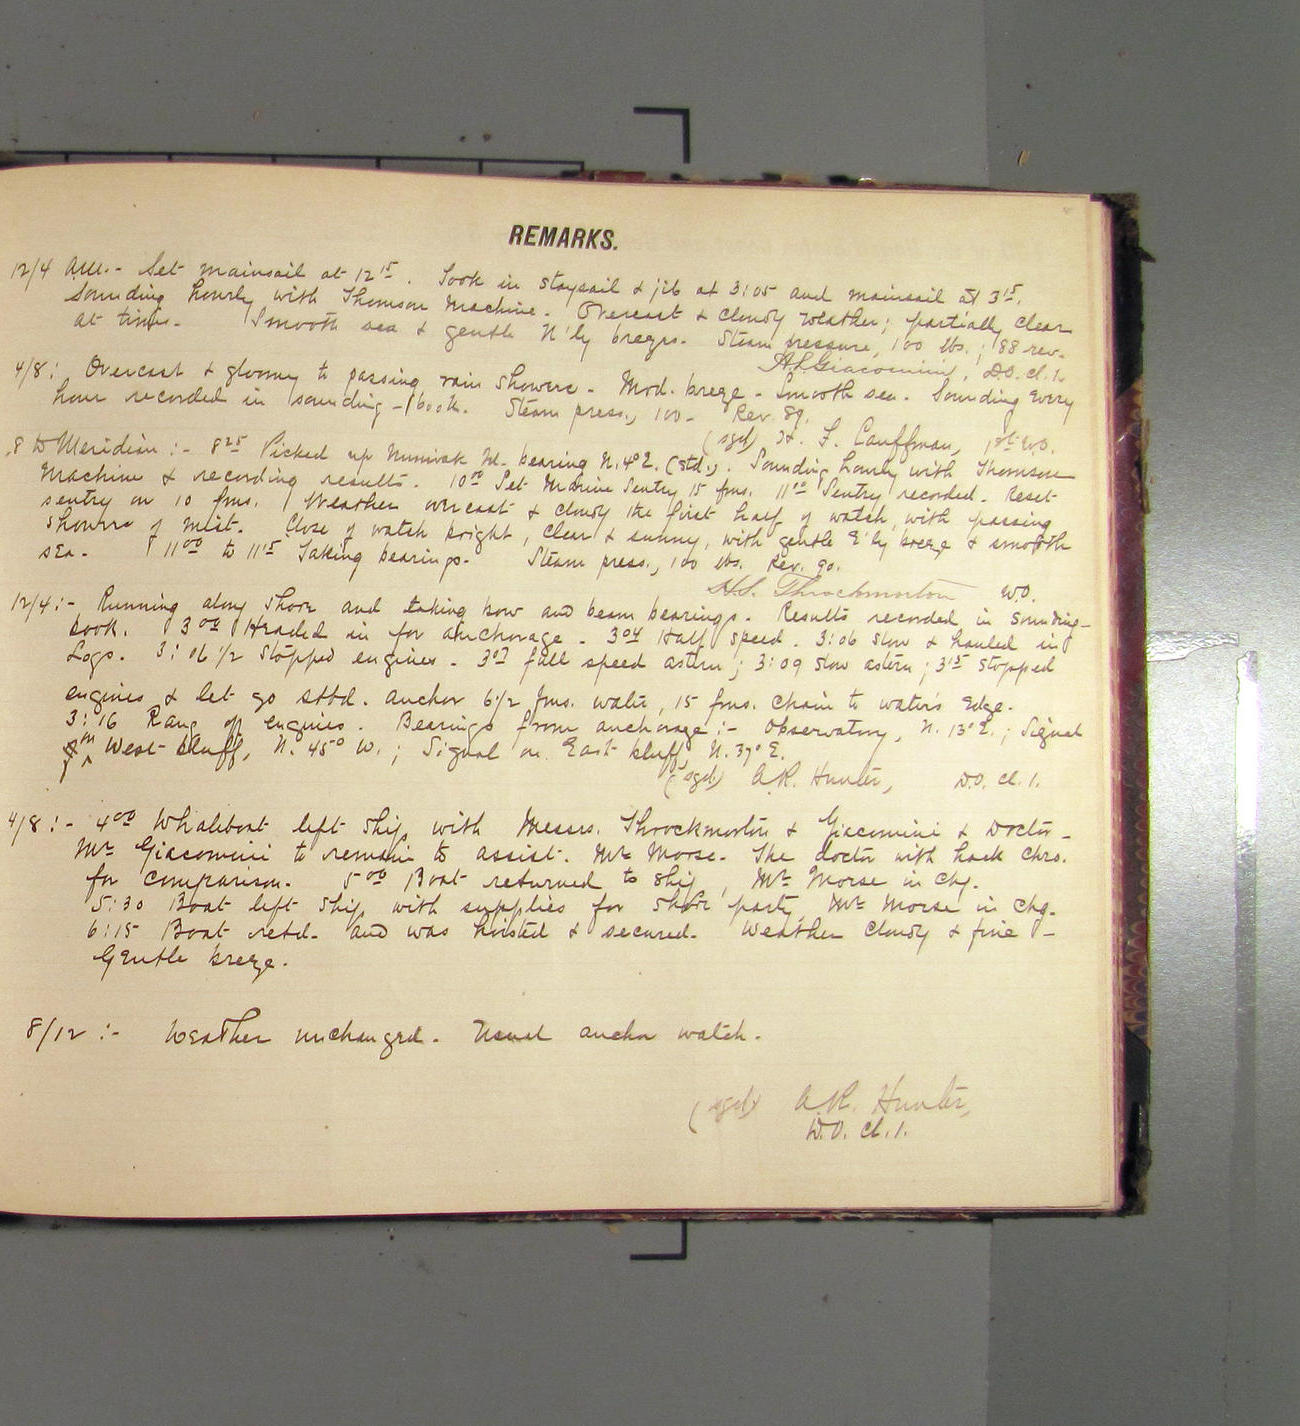 REMARKS.
12/4 A.M.- Set mainsail at 12 15. Took in staysail & jib at 3:05 and mainsail at 3 15.
Sounding hourly with Thomson Machine. Overcast & cloudy weather; partially clear
at times. Smooth sea & gentle N'ly breeze. Steam pressure, 100 lbs.; 88 rev.
Giacomini, D.O. Cl. 1.
4/8: Overcast & gloomy to passing rain showers. Mod. breeze. Smooth sea. Sounding every
hour recorded in sounding-book. Steam press., 100. Rev. 89.
(sgd) H. F. Cauffman, 1st W.O.
8 to Meridian:- 8 25 Picked up Nunivak Id. bearing N. 4° E. (std.). Sounding hourly with Thomson
Machine & recording results. 10 00 Set Marine Sentry 15 fms. 11 00 Sentry recorded. Reset
sentry on 10 fms. Weather overcast & cloudy the first half of watch, with passing
showers of mist. Close of watch bright, clear & sunny, with gentle E'ly breeze & smooth
sea. 11 00 to 11 15 Taking bearings. Steam press., 100 lbs. Rev. 90.
H.S. Throckmorton W.O.
12/4:- Running along shore and taking bow and beam bearings. Results recorded in sounding-
book. 3 00 Headed in for anchorage. 3 04 Half speed. 3:06 slow & hauled in
Logs. 3:06 1/2 stopped engines. 3 07 full speed astern; 3:09 slow astern; 3 15 stopped
engines & let go stbd. anchor 6 1/2 fms. water, 15 fms. chain to water's edge.
3:16 Rang off engines. Bearings from anchorage:- Observatory, N. 13° E.; Signal
on West bluff, N. 45° W.; Signal on East bluff, N. 37° E.
(sgd) A.R. Hunter, D.O. Cl. 1.
4/8:- 4 00 Whaleboat left ship with Messrs. Throckmorton & Giacomini & Doctor-
Mr Giacomini to remain to assist Mr Morse. The doctor with hack chro.
for comparison. 5 00 Boat returned to ship, Mr Morse in chg.
5:30 Boat left ship with supplies for shore party, Mr Morse in chg.
6:15 Boat retd. and was hoisted & secured. Weather cloudy & fine-
Gentle breeze.
8/12:- Weather unchanged. Usual anchor watch.
(sgd) A.R. Hunter,
W.O. Cl. 1.